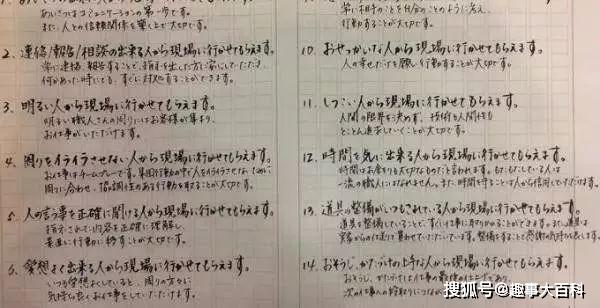 あいさつはコミュニケーションの第一歩です。
また、人との信頼関係を築く上で大切です。
2. 連絡/報告/相談の出来る人から現場に行かせてもらえます。
常に連絡、報告することで、指示を出した方に安心していただき
何かあった時にでも、すぐに対処することができます。
3. 明るい人から現場に行かせてもらえます。
明るい職人さんの周りにはお客様が集まり、
お仕事がいただけます。
4. 周りをイライラさせない人から現場に行かせてもらえます。
お仕事はチームプレーです。集団行動の中で人をイライラさせないために
周りに合わせ、協調性のある行動を取ることが大切です。
5. 人の言う事を正確に聞ける人から現場に行かせてもらえます。
指示された内容を正確に理解し、
素直に行動に移すことが大切です。
6. 愛想よく出来る人から現場に行かせてもらえます。
いつも愛想よくしていると、周りの方々に
気持ち良くお仕事をしていただけます。
常に相手のことを自分のことのように考え、
行動することが大切です。
10. おせっかいな人から現場に行かせてもらえます。
人の幸せだけを願い行動することが大切です。
11. しつこい人から現場に行かせてもらえます。
人間の限界を決めず、技術も人間性も
とことん追求していくことが大切です。
12. 時間を気に出来る人から現場に行かせてもらえます。
時間はお金よりも大切なものだと言われます。もたもたしている人は
一流の職人にはなれません。また時間を守ることが人から信用していただけます。
13. 道具の整備がいつもされている人から現場に行かせてもらえます。
道具を整備していることで、すぐに仕事に取りかかることができます。また道具は
実家からの仕送りで買わせていただいています。整備をすることで感謝の気持ちも表します。
14. おそうじ、かたづけの上手な人から現場に行かせてもらえます。
おそうじ、かたづけは仕事の最後の仕上げであり
次の仕事への段取りになるからです。
搜狐号@趣事大百科